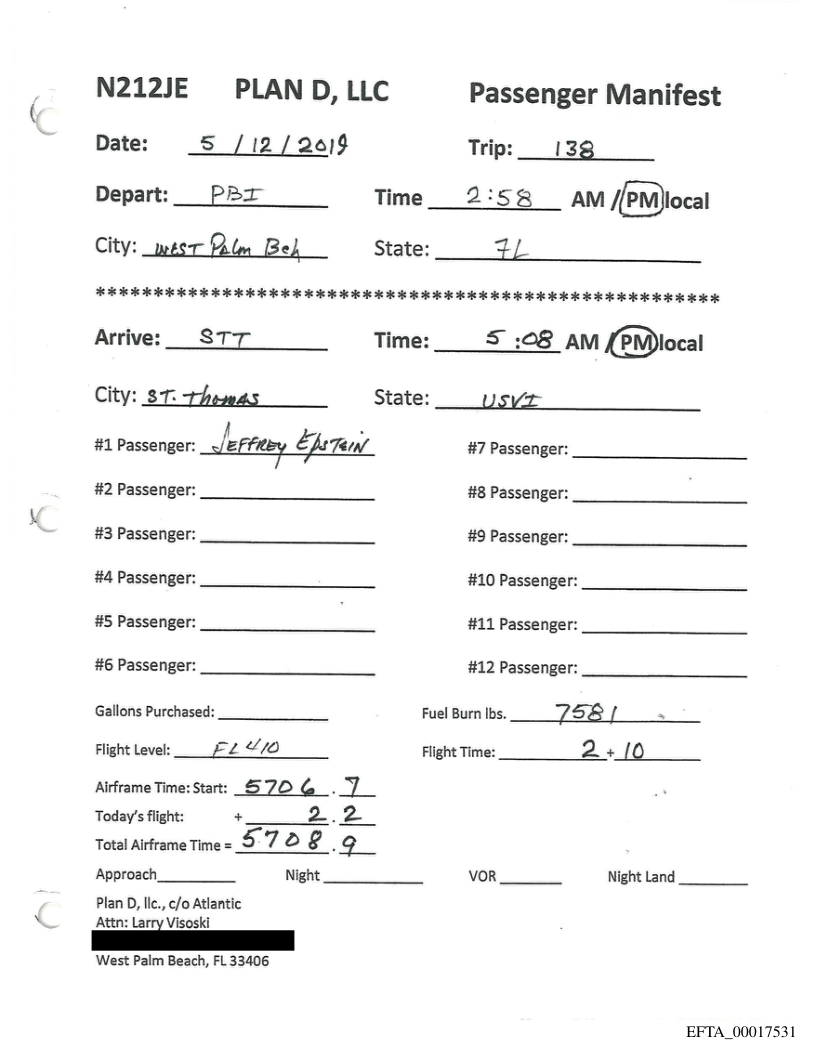 N212JE PLAN D, LLC Passenger Manifest
Date: 5 / 12 / 2019 Trip: 138
Depart: PBI Time 2:58 AM / PM local
City: WEST Palm Bch State: FL
****************************************************
Arrive: STT Time: 5 :08 AM / PM local
City: ST. Thomas State: USVI
#1 Passenger: JEFFREY EPSTEIN #7 Passenger:
#2 Passenger: #8 Passenger:
#3 Passenger: #9 Passenger:
#4 Passenger: #10 Passenger:
#5 Passenger: #11 Passenger:
#6 Passenger: #12 Passenger:
Gallons Purchased: Fuel Burn lbs. 7581
Flight Level: FL 410 Flight Time: 2 + 10
Airframe Time: Start: 5706 . 7
Today's flight: + 2 . 2
Total Airframe Time = 5708 . 9
Approach Night VOR Night Land
Plan D, llc., c/o Atlantic
Attn: Larry Visoski
West Palm Beach, FL 33406
EFTA_00017531